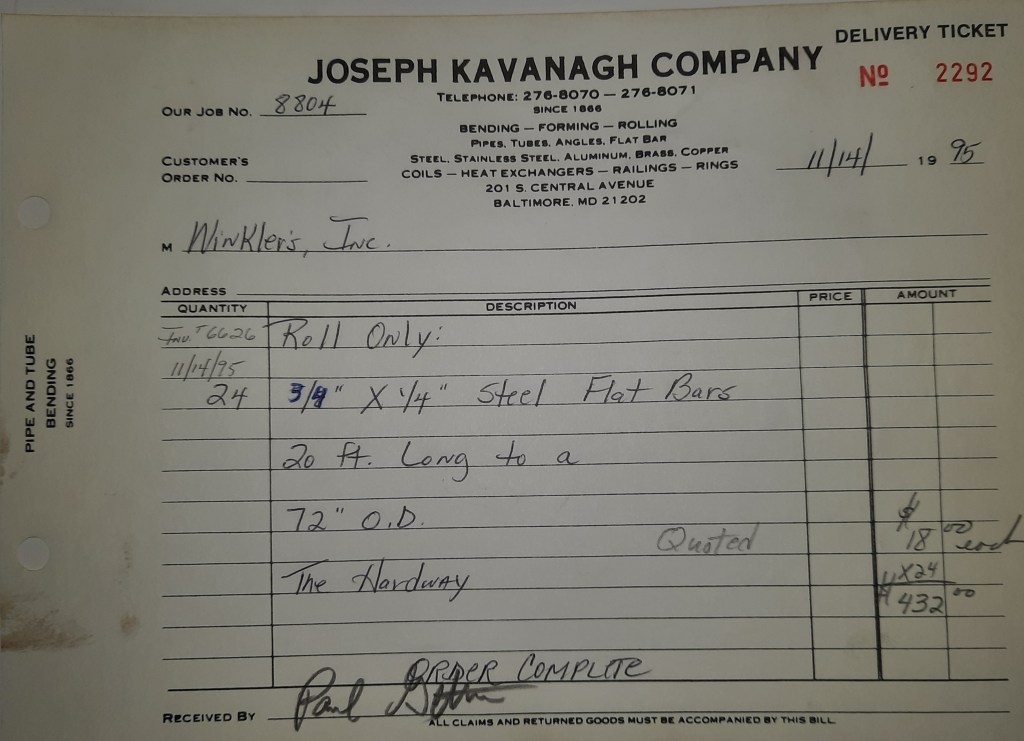 DELIVERY TICKET
JOSEPH KAVANAGH COMPANY
Nº 2292
TELEPHONE: 276-8070 — 276-8071
SINCE 1866
OUR JOB NO. 8804
BENDING — FORMING — ROLLING
PIPES, TUBES, ANGLES, FLAT BAR
STEEL, STAINLESS STEEL, ALUMINUM, BRASS, COPPER
COILS — HEAT EXCHANGERS — RAILINGS — RINGS
201 S. CENTRAL AVENUE
BALTIMORE, MD 21202
CUSTOMER'S
ORDER NO.
11/14/ 19 95
M Winkler's, Inc.
ADDRESS
QUANTITY DESCRIPTION PRICE AMOUNT
6626 Roll Only:
11/14/95
24 3/4" X 1/4" Steel Flat Bars
20 ft. Long to a
72" O.D.
Quoted $18 00 each
The Hardway X24
$432 00
ORDER COMPLETE
RECEIVED BY Paul
ALL CLAIMS AND RETURNED GOODS MUST BE ACCOMPANIED BY THIS BILL
PIPE AND TUBE
BENDING
SINCE 1866